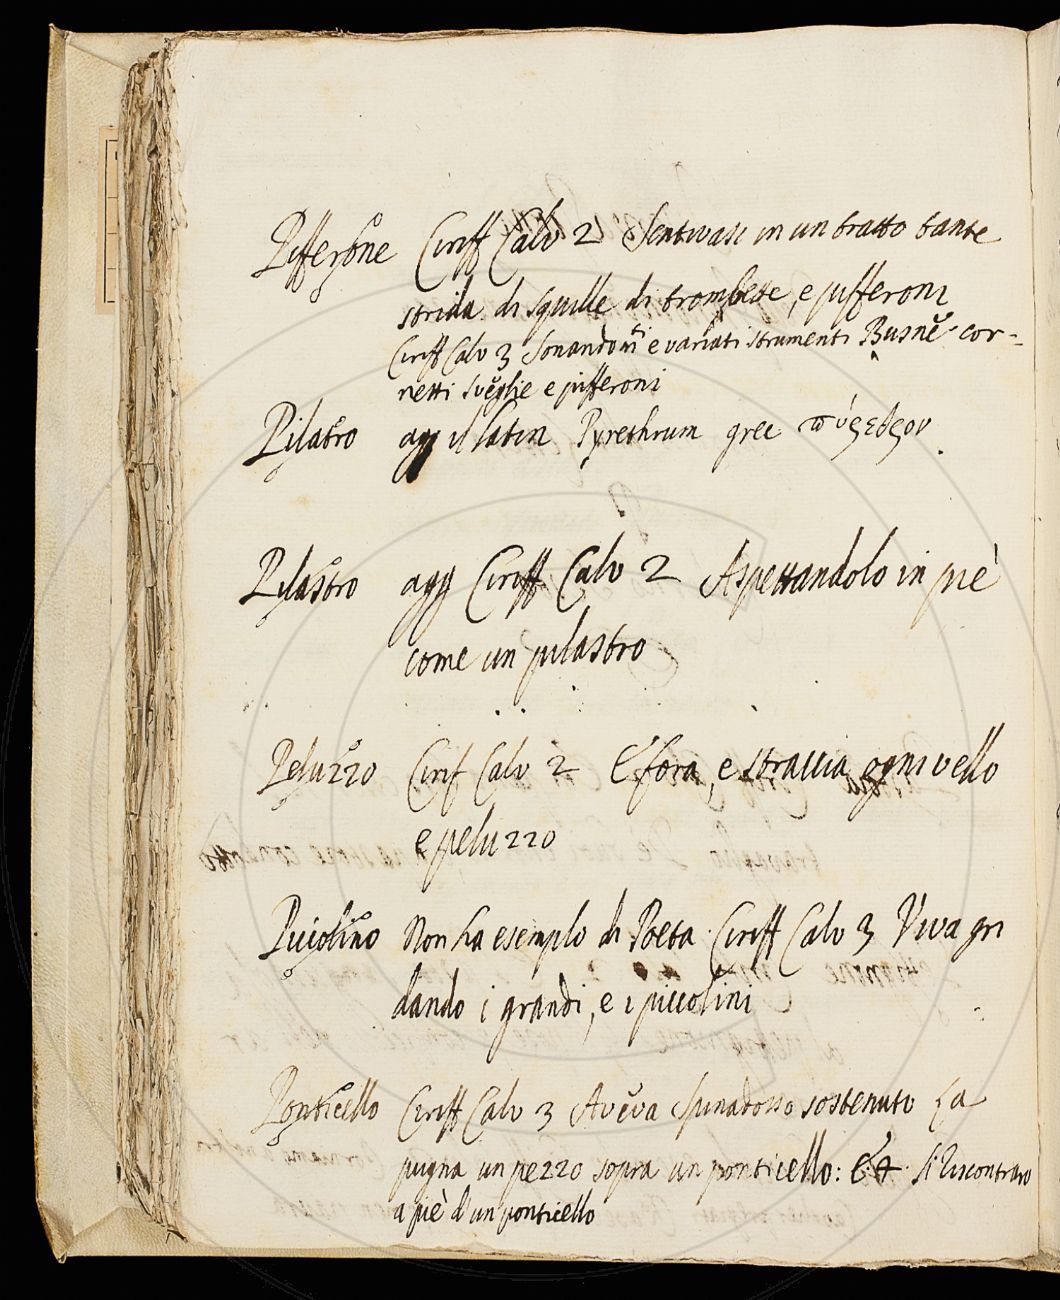 Pifferone Ciriff Calv 2 Sentivasi in un tratto tante
strida di squille di trombette, e pifferoni
Ciriff Calv 3 Sonando e variati strumenti Busne cor-
netti sveglie e pifferoni
Pilatro agg il latin Pyrethrum grec πύρεθρον.
Pilastro agg Ciriff Calv 2 Aspettandolo in piè
come un pilastro
Peluzzo Cirif Calv 2 E fora, e straccia ogni vello
e peluzzo
Piccolino Non ha esemplo di Poeta. Ciriff Calv 3 Viva gri
dando i grandi, e i piccolini
Ponticello Ciriff Calv 3 Aveva Spinadosso sostenuto La
pugna un pezzo sopra un ponticello: Et. Si riscontraro
a piè d'un ponticello